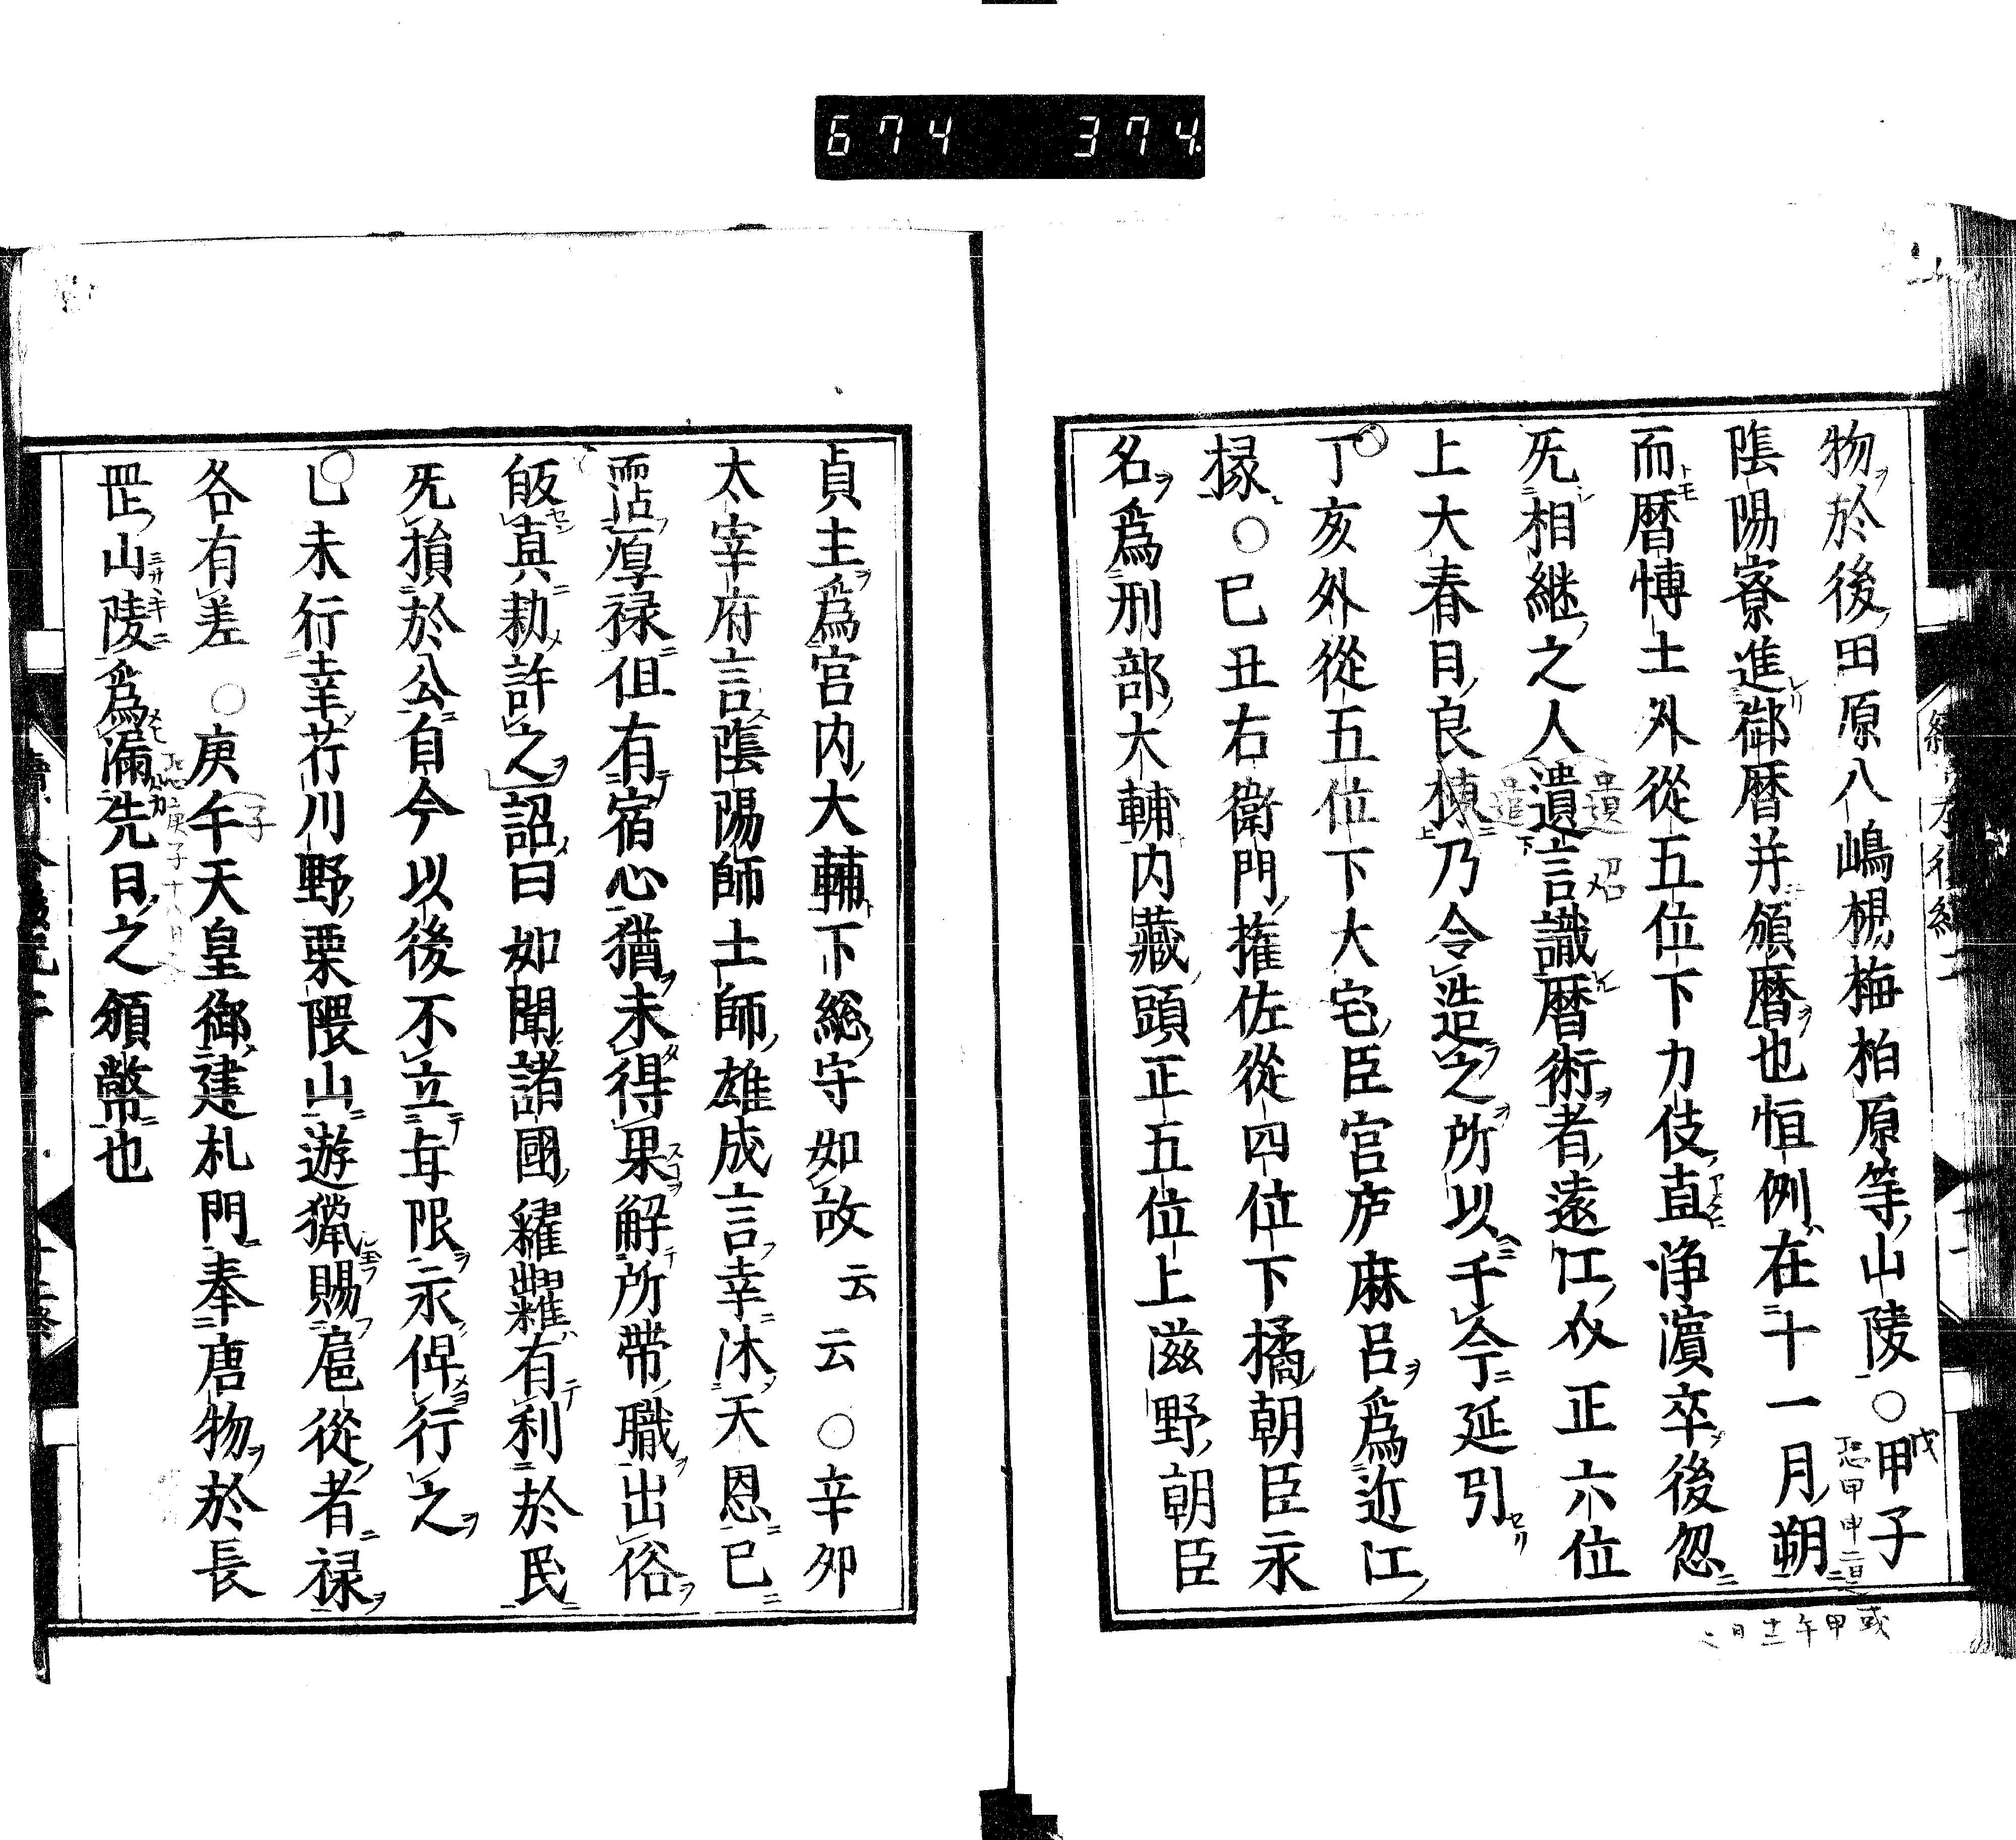 674 374
物於後田原八嶋楊梅柏原等山陵○甲子
陰陽寮進御暦并頒暦也恒例在十一月朔
而暦博士外從五位下刀伎直浄濵卒後忽
旡相継之人遺言識暦術者遠江介正六位
上大春日良棟乃令造之所以千今延引
丁亥外從五位下大宅臣宮庐麻呂爲近江
掾○巳丑右衛門權佐從四位下橘朝臣永
名爲刑部大輔内藏頭正五位上滋野朝臣
貞主爲宮内大輔下総守如故云云○辛夘
太宰府言陰陽師土師雄成言幸沐天恩已
霑厚禄伹有宿心猶未得果解所帶職出俗
皈真勅許之詔曰如聞諸國糴糶有利於民
旡損於公自今以後不立年限永俾行之
已未行幸芹川野栗隈山遊獵賜扈從者禄
各有差○庚午天皇御建礼門奉唐物於長
罡山陵爲漏先日之頒幣也